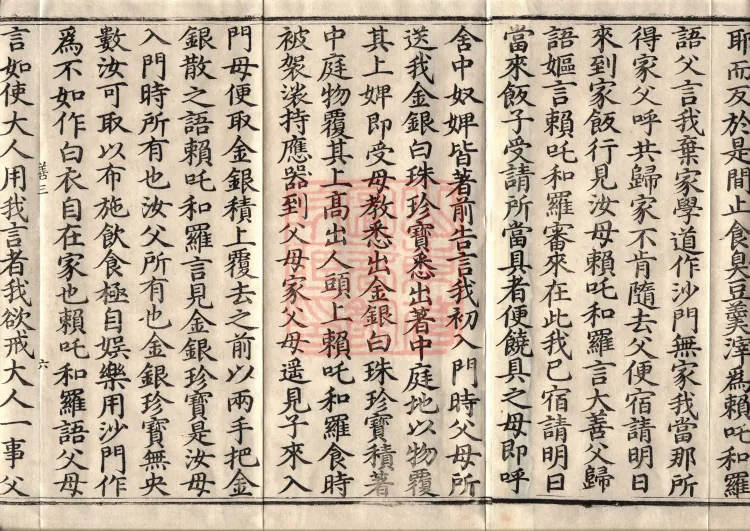 耶而反於是間止食臭豆羹滓爲賴吒和羅
語父言我棄家學道作沙門無家我當那所
得家父呼共歸家不肯隨去父便宿請明日
來到家飯行見汝母賴吒和羅言大善父歸
語嫗言賴吒和羅審來在此我已宿請明日
當來飯子受請所當具者便饒具之母即呼
舍中奴婢皆著前告言我初入門時父母所
送我金銀白珠珍寶悉出著中庭地以物覆
其上婢即受母教悉出金銀白珠珍寶積著
中庭物覆其上高出人頭上賴吒和羅食時
被袈裟持應器到父母家父母遥見子來入
門母便取金銀積上覆去之前以兩手把金
銀散之語賴吒和羅言見金銀珍寶是汝母
入門時所有也汝父所有也金銀珍寶無央
數汝可取以布施飲食極自娛樂用沙門作
爲不如作白衣自在家也賴吒和羅語父母
善三 六
言如使大人用我言者我欲戒大人一事父